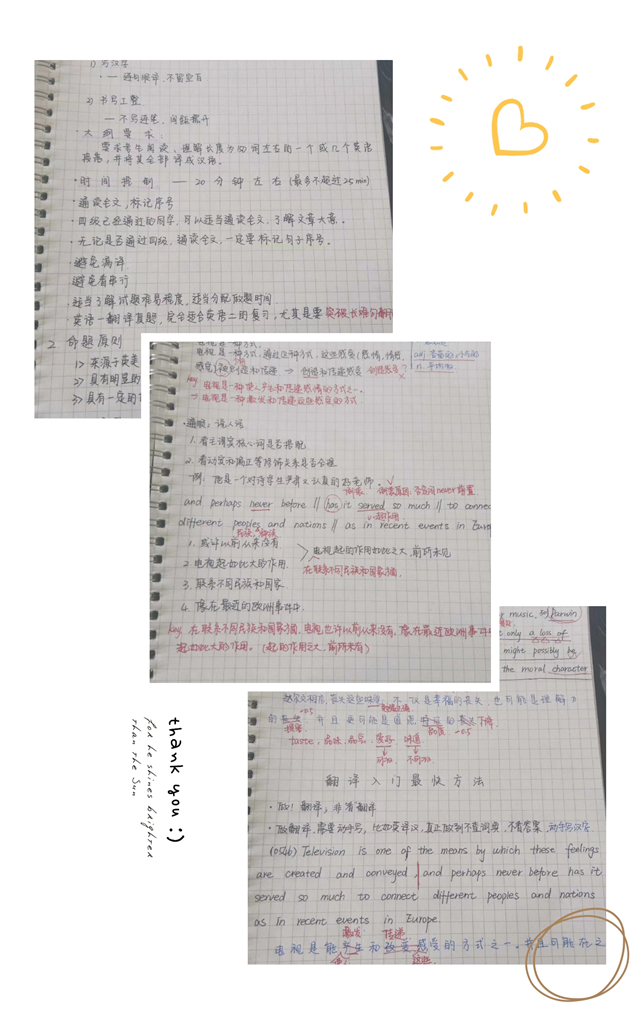 1) 写汉字
· — 通句顺译,不留空白
2) 书写工整
— 不写连笔,间距撑开
· 大纲要求:
要求考生阅读、理解长度为150词左右的一个或几个英语
段落,并将其全部译成汉语。
· 时间控制 — 20分钟左右(最多不超过25min)
· 通读全文,标记序号
· 四级已经通过的同学,可以适当通读全文,了解文章大意。
· 无论是否通过四级,通读全文,一定要标记句子序号。
避免漏译
避免看串行
· 适当了解试题难易程度,适当分配做题时间
· 英语一翻译真题,完全适合英语二的复习,尤其是要突破长难句翻译
2 命题原则
1> 来源于英美
2> 具有明显的
3> 具有一定的
电视是一种方式,通过这种方式,这些感受(感情,情感,
感觉)被创造和传递 → 创造和传递感受
key 电视是一种使人产生和传递感情的方式之一。
→ 电视是一种激发和传递这些感受的方式
· 通顺:说人话
1. 看主谓宾核心词是否搭配
2. 看动宾和偏正等修饰关系是否合理
例:他是一个对待学生严肃又认真的好老师。
and perhaps never before // has it served so much // to connect
different peoples and nations // as in recent events in Europe
1. 或许以前从来没有
2. 电视起如此大的作用.
电视起的作用如此之大,前所未见
在联系不同民族和国家
3. 联系不同民族和国家
4. 像在最近的欧洲事件中.
key. 在联系不同民族和国家方面,电视也许以前从来没有,像在最近欧洲事件中
起如此大的作用。(起的作用之大,前所未有)
music,
only a loss of
might possibly be
the moral character
翻译入门最快方法
· 做!翻译,非看翻译
· 做翻译,需要动手写,比如英译汉,真正做到不查词典,不看答案,动手写汉字
(0546) Television is one of the means by which these feelings
are created and conveyed, and perhaps never before has it
served so much to connect different peoples and nations
as in recent events in Europe.
激发 传递
电视是能产生和改变感受的方式之一。并且可能在之
thank you :)
For he shines brighter
than the Sun